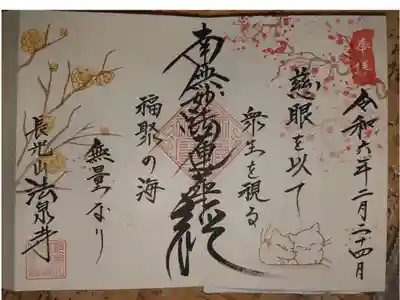 奉拝
令和六年二月二十四月
慈眼を以て
衆生を視る
南無妙法蓮華経
福聚の海
無量なり
長光山 法泉寺